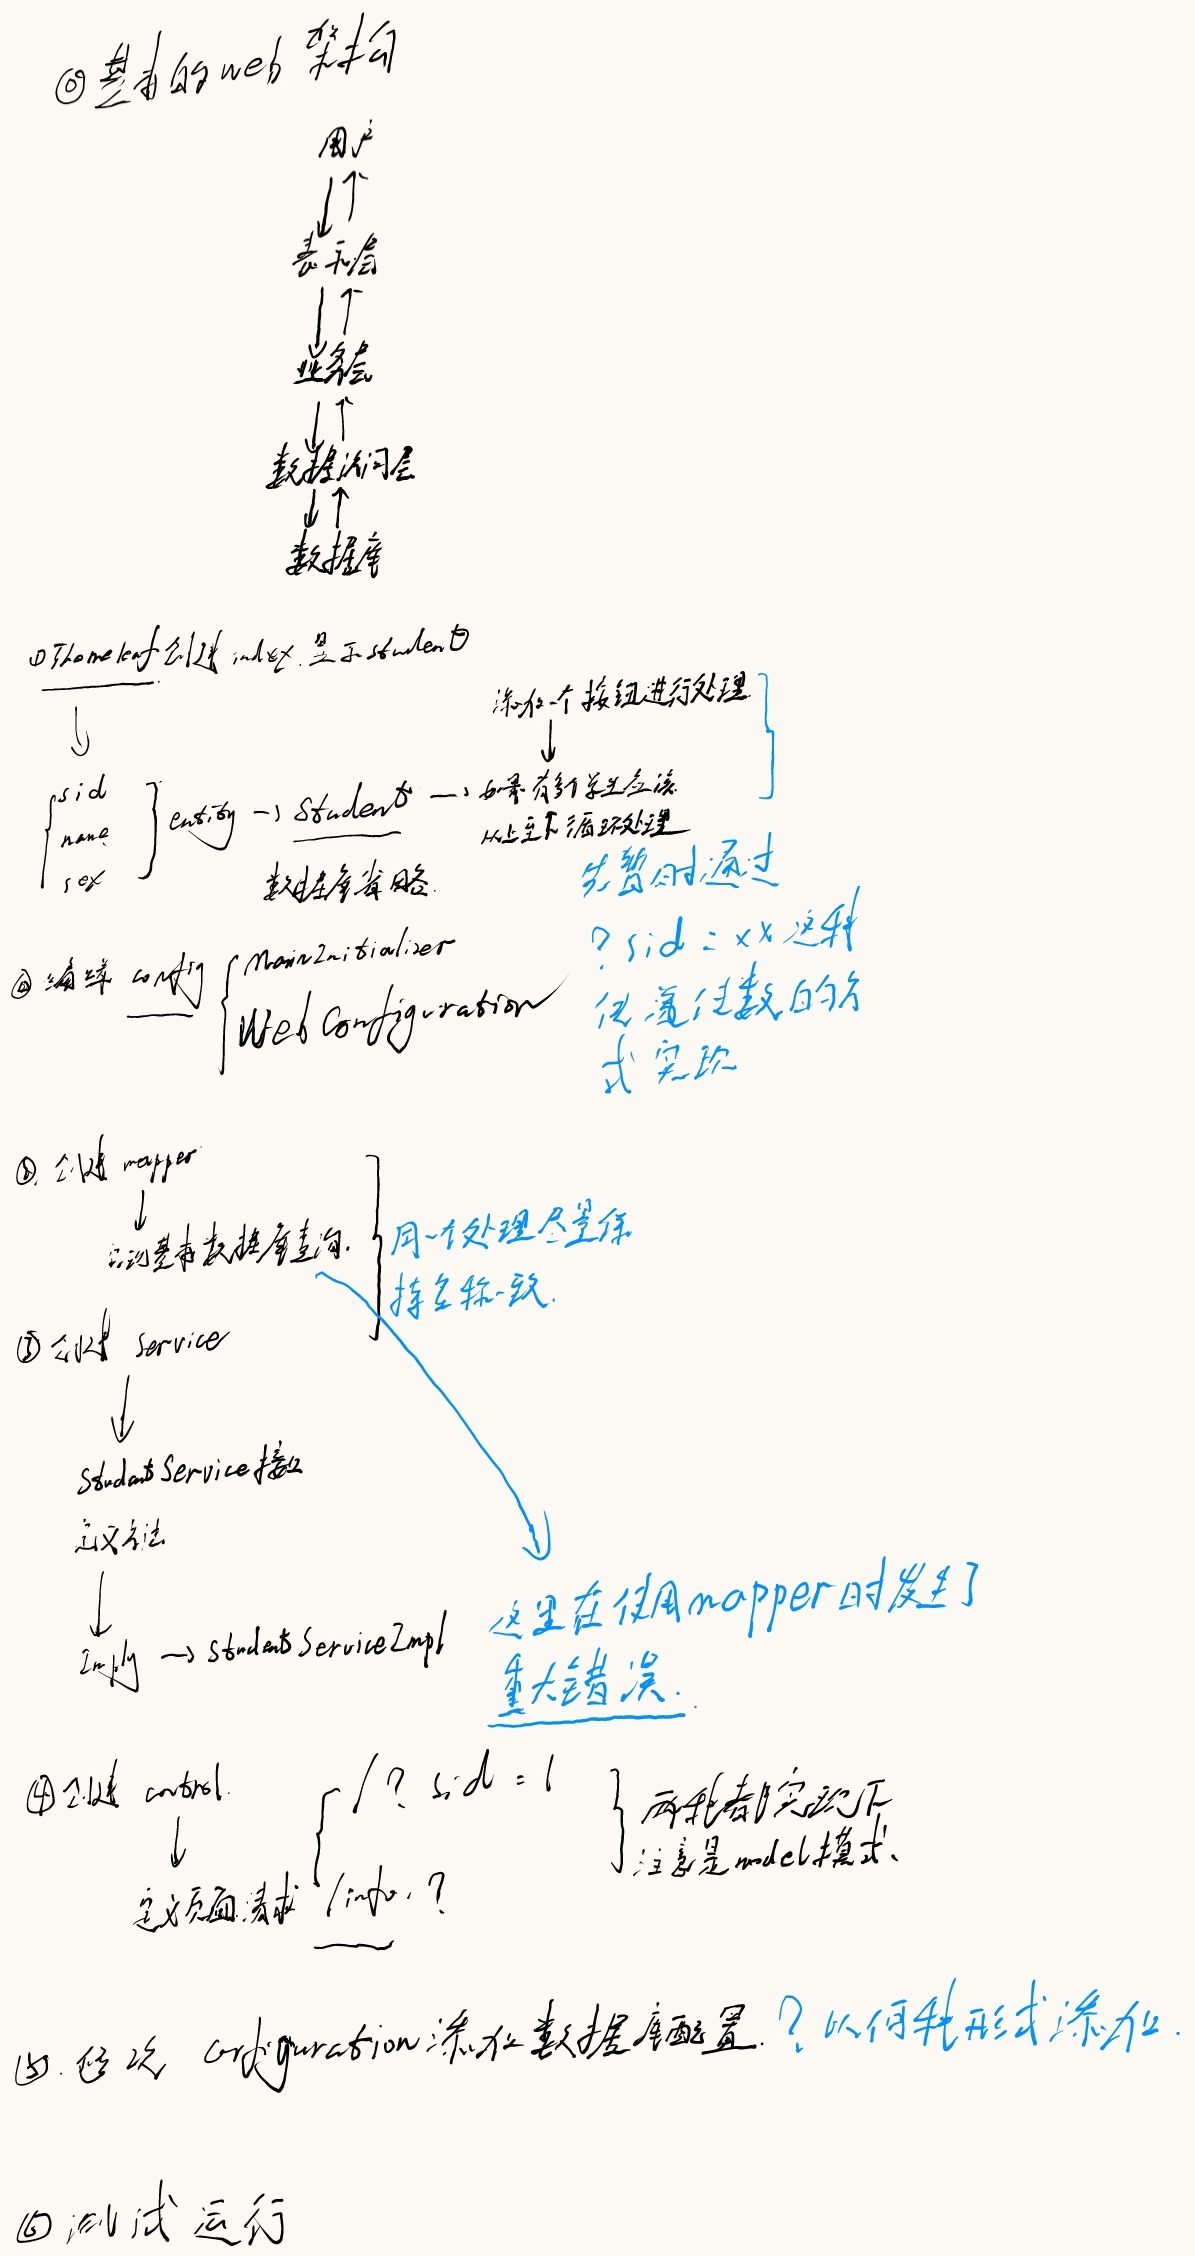 ⓪基本的web架构
用户
表示层
业务层
数据访问层
数据库
①Thymeleaf创建index 显示student
添加一个按钮进行处理
sid
name
sex
entity → Student → 如果有多个学生应该
从上至下循环处理
数据库省略
先暂时通过
?sid=xx这种
传递住数的方
式实现
② 编译 config
MainInitializer
WebConfiguration
创建 mapper
实现基本数据库查询.
同一个处理尽量保
持名称一致.
③创建 service
StudentService接口
定义方法
Imply → StudentServiceImpl
这里在使用mapper时发生了
重大错误.
④创建 control.
/? sid = 1
定义页面请求 /info.?
两种都实现下
注意是model模式、
⑤. Configuration添加数据库配置.?以何种形式添加.
⑥测试运行